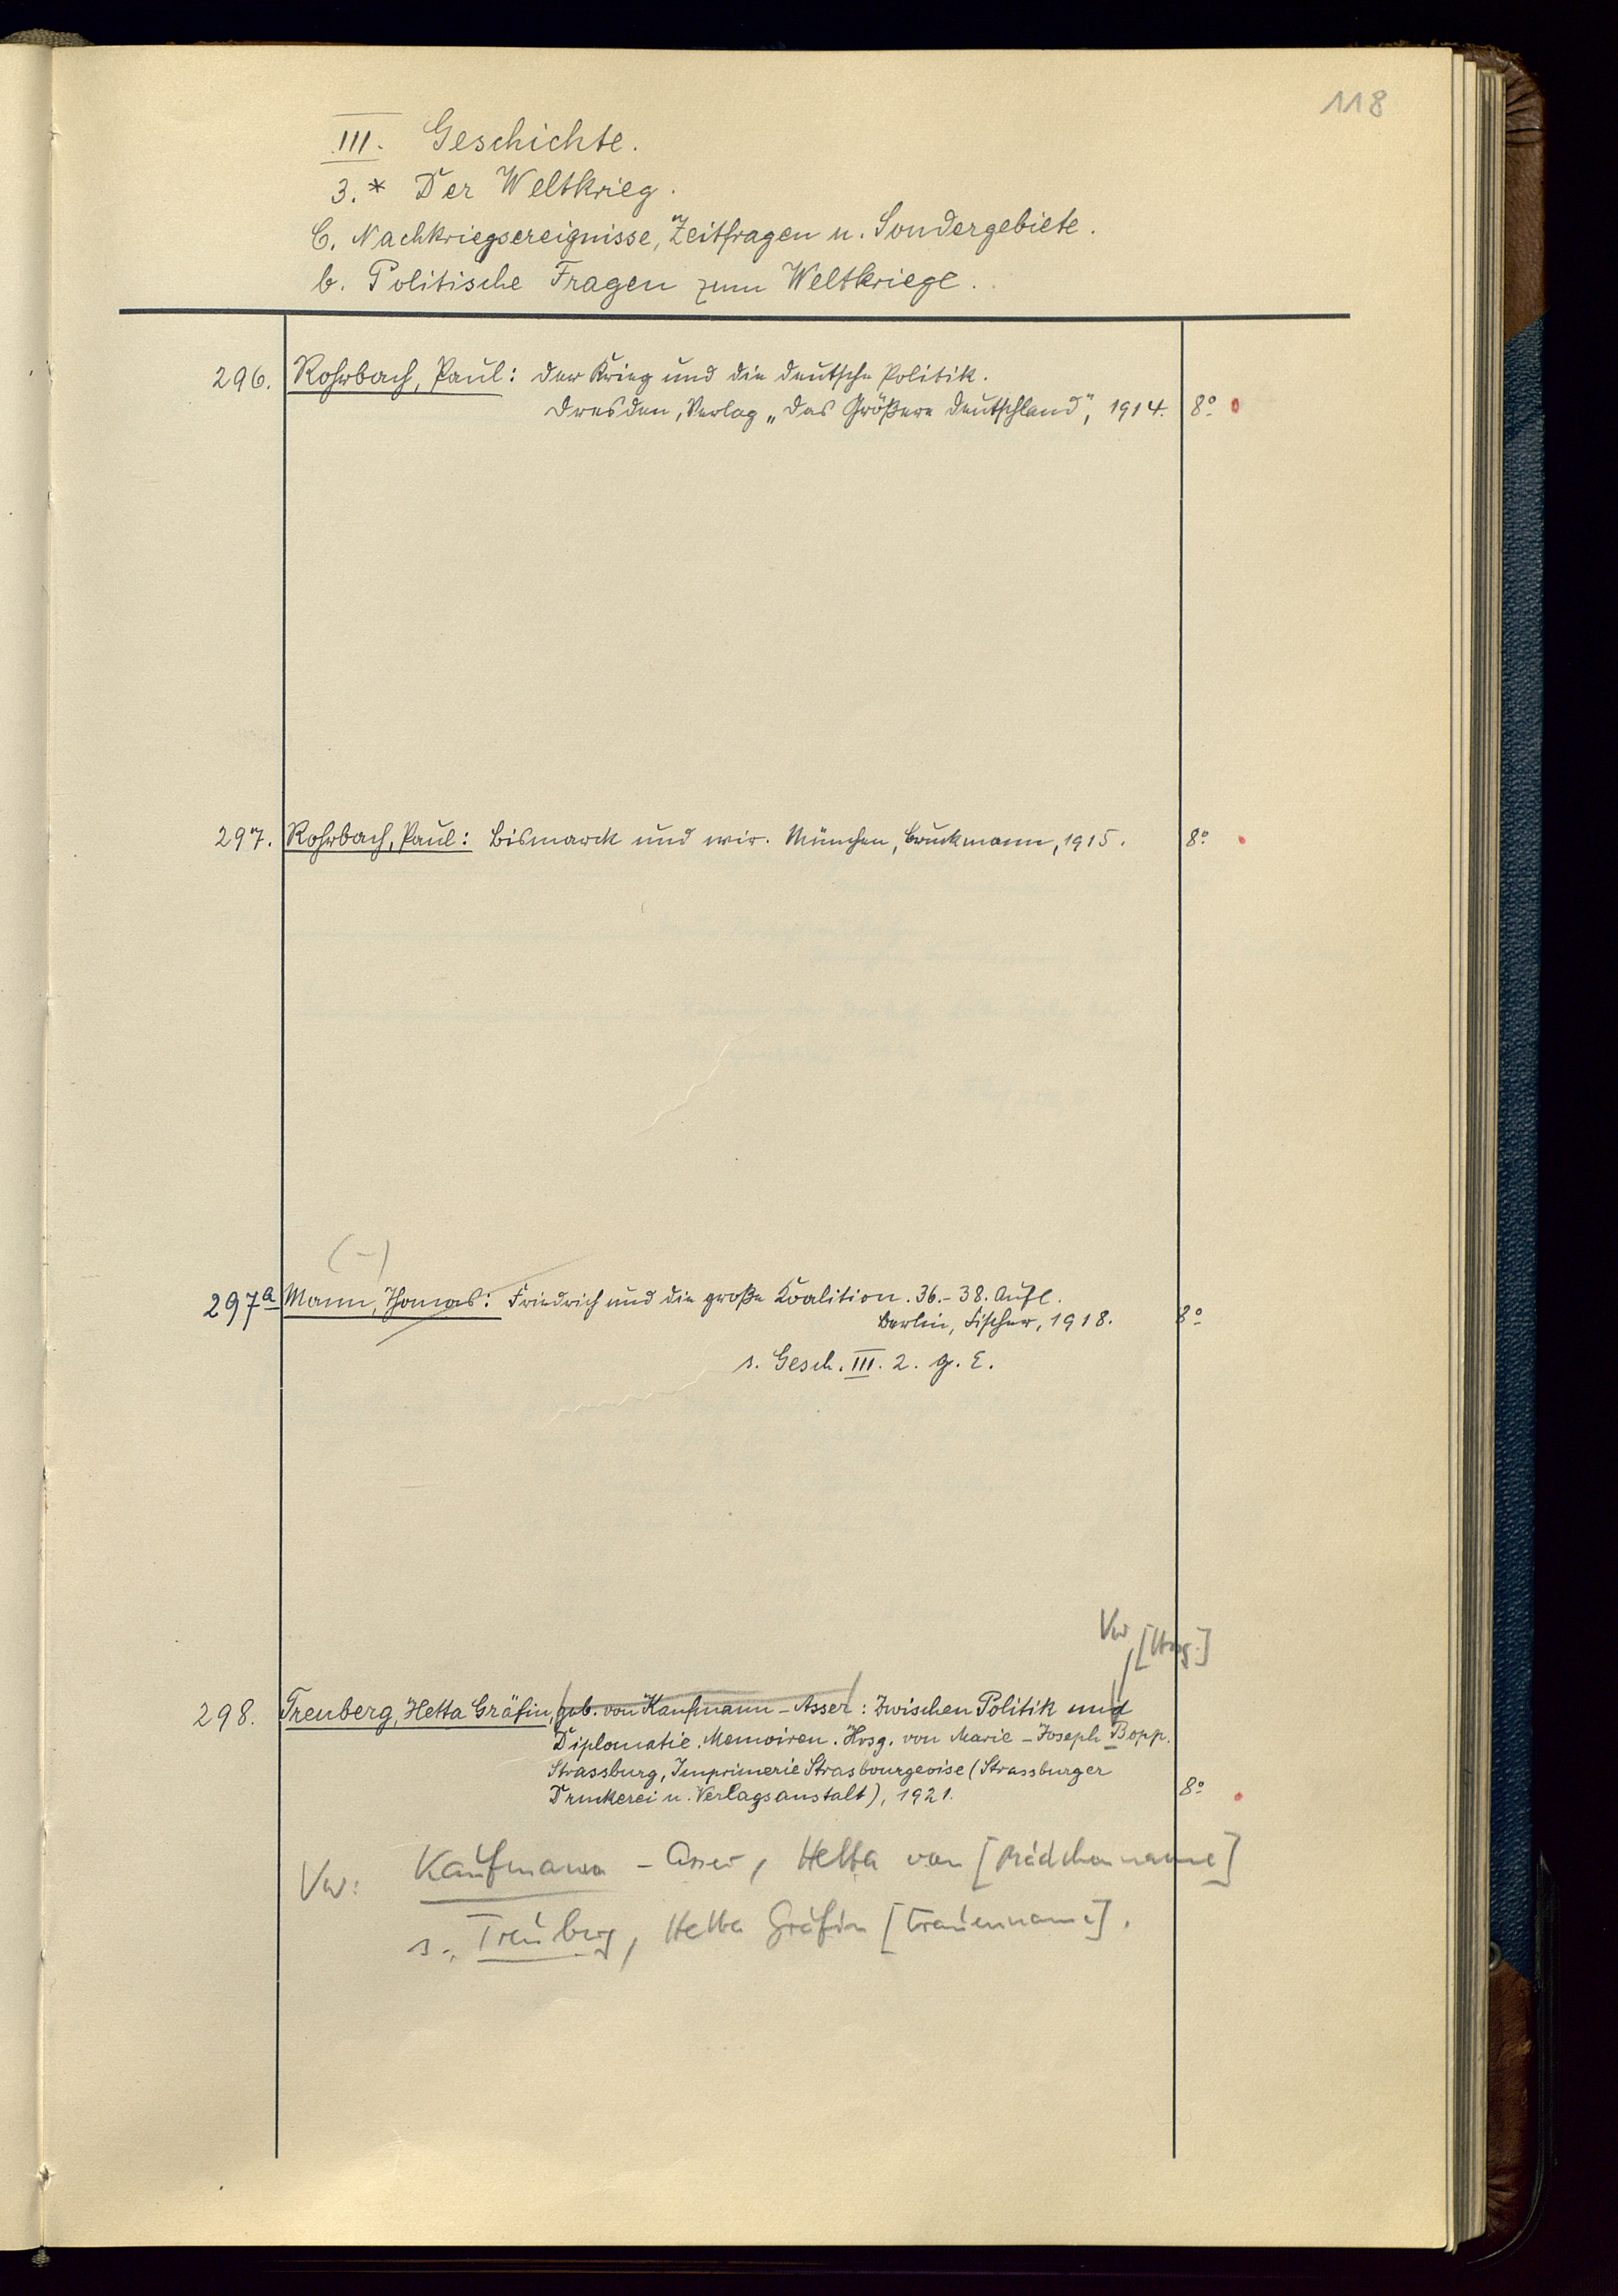 118
III. Geschichte.
3.* Der Weltkrieg.
C. Nachkriegsereignisse, Zeitfragen u. Sondergebiete.
b. Politische Fragen zum Weltkriege.
296. Rohrbach, Paul: Der Krieg und die deutsche Politik.
Dresden, Verlag „Das Größere Deutschland", 1914. 8°
297. Rohrbach, Paul: Bismarck und wir. München, Bruckmann, 1915. 8°
(-)
297a Mann, Thomas: Friedrich und die große Koalition. 36.-38. Aufl.
Berlin, Fischer, 1918. 8°
s. Gesch. III. 2. g. E.
Vw [Hrsg.]
298. Treuberg, Hetta Gräfin, geb. von Kaufmann-Asser: Zwischen Politik und
Diplomatie. Memoiren. Hrsg. von Marie-Joseph Bopp.
Strassburg, Imprimerie Strasbourgeoise (Strassburger
Druckerei u. Verlagsanstalt), 1921. 8°
Vw: Kaufmann-Asser, Hetta von [Mädchenname]
s. Treuberg, Hetta Gräfin [Frauenname].